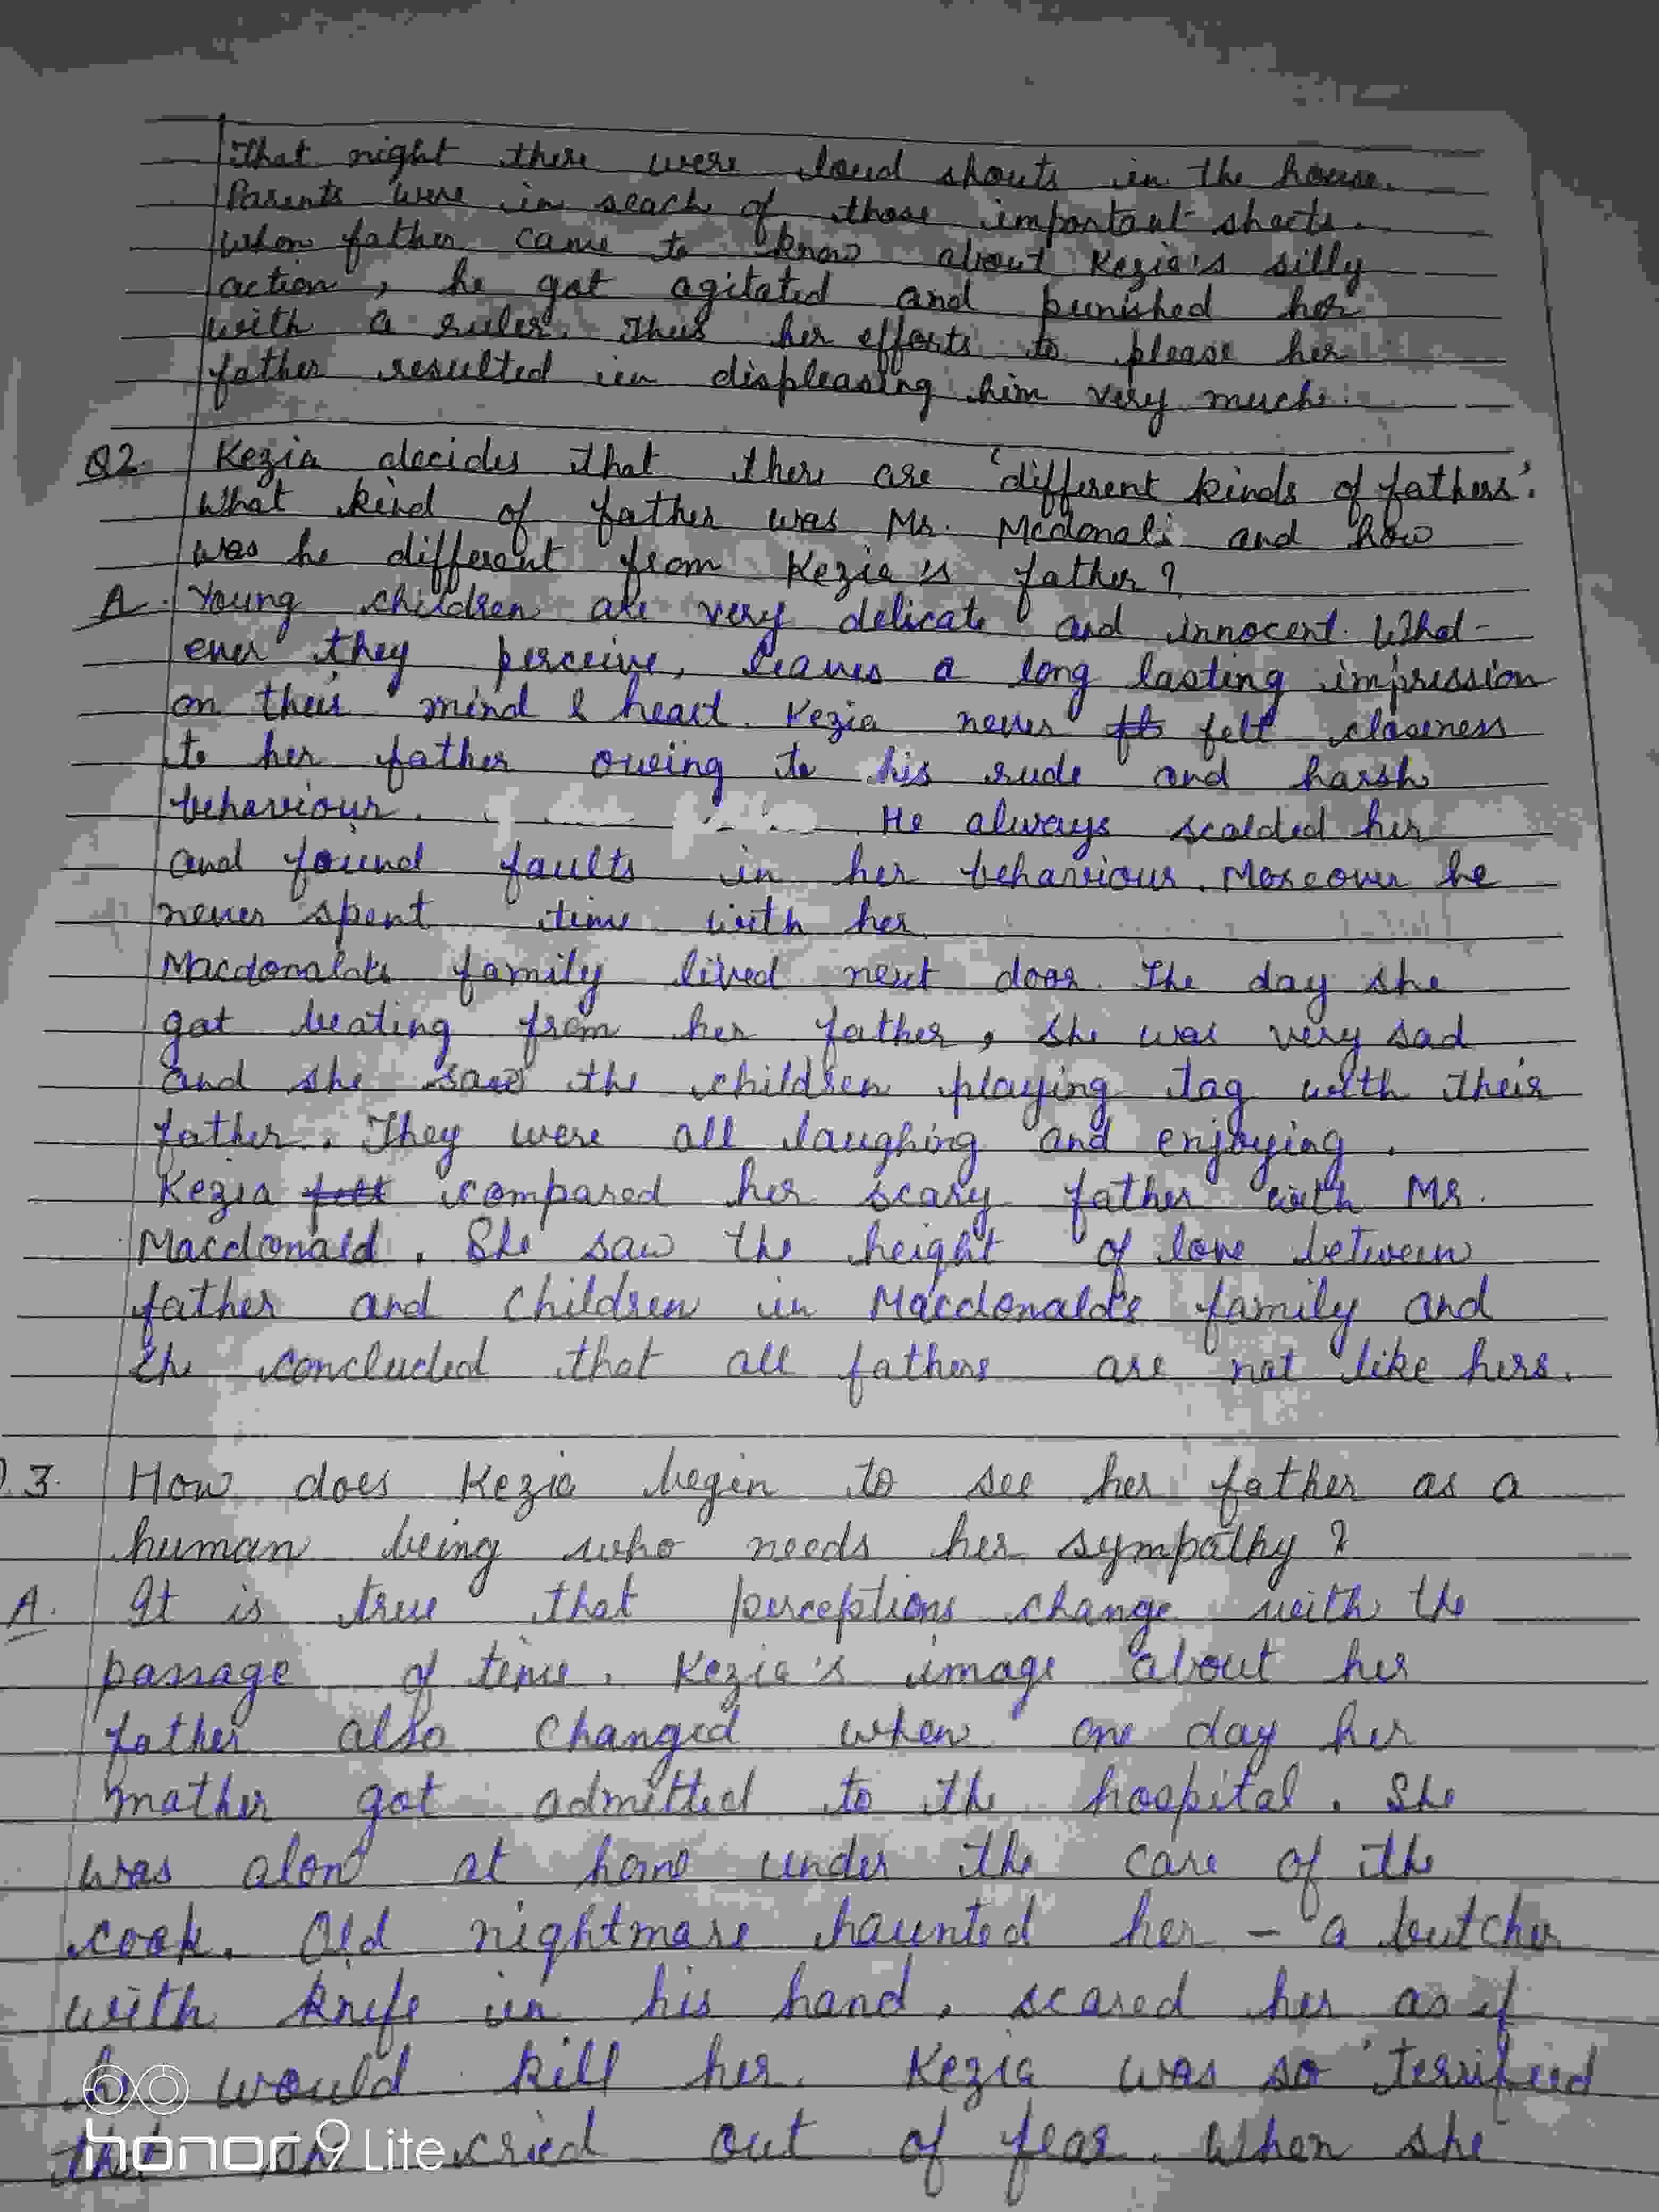 That night there were loud shouts in the house.
Parents were in seach of those important sheets.
When father came to know about Kezia's silly
action, he got agitated and punished her
with a ruler. Thus her efforts to please her
father resulted in displeasing him very much.
Q2. Kezia decides that there are 'different kinds of fathers'.
What kind of father was Mr. Mcdonald and how
was he different from Kezia's father?
A. Young children are very delicate and innocent. What-
ever they perceive, leaves a long lasting impression
on their mind & heart. Kezia never felt closeness
to her father owing to his rude and harsh
behaviour. He always scolded her
and found faults in her behaviour. Moreover he
never spent time with her.
Macdonald's family lived next door. The day she
got beating from her father, she was very sad
and she saw the children playing tag with their
father. They were all laughing and enjoying.
Kezia compared her scary father with Mr.
Macdonald. She saw the height of love between
father and children in Macdonald's family and
she concluded that all fathers are not like hers.
Q.3. How does Kezia begin to see her father as a
human being who needs her sympathy?
A. It is true that perceptions change with the
passage of time. Kezia's image about her
father also changed when one day her
mother got admitted to the hospital. She
was alone at home under the care of the
cook. Old nightmare haunted her - a butcher
with knife in his hand, scared her as if
he would kill her. Kezia was so terrified
that she cried out of fear. When she
honor 9 Lite